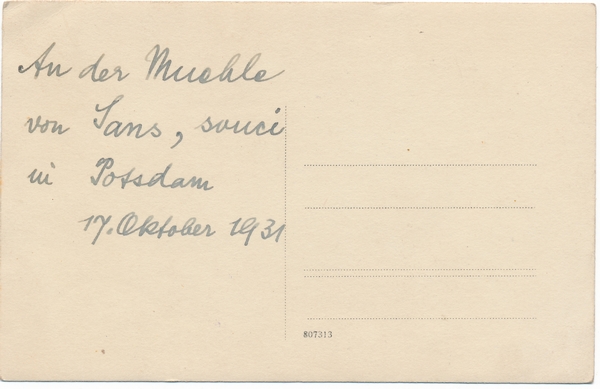 An der Muehle
von Sans, souci
in Potsdam
17. Oktober 1931
807313